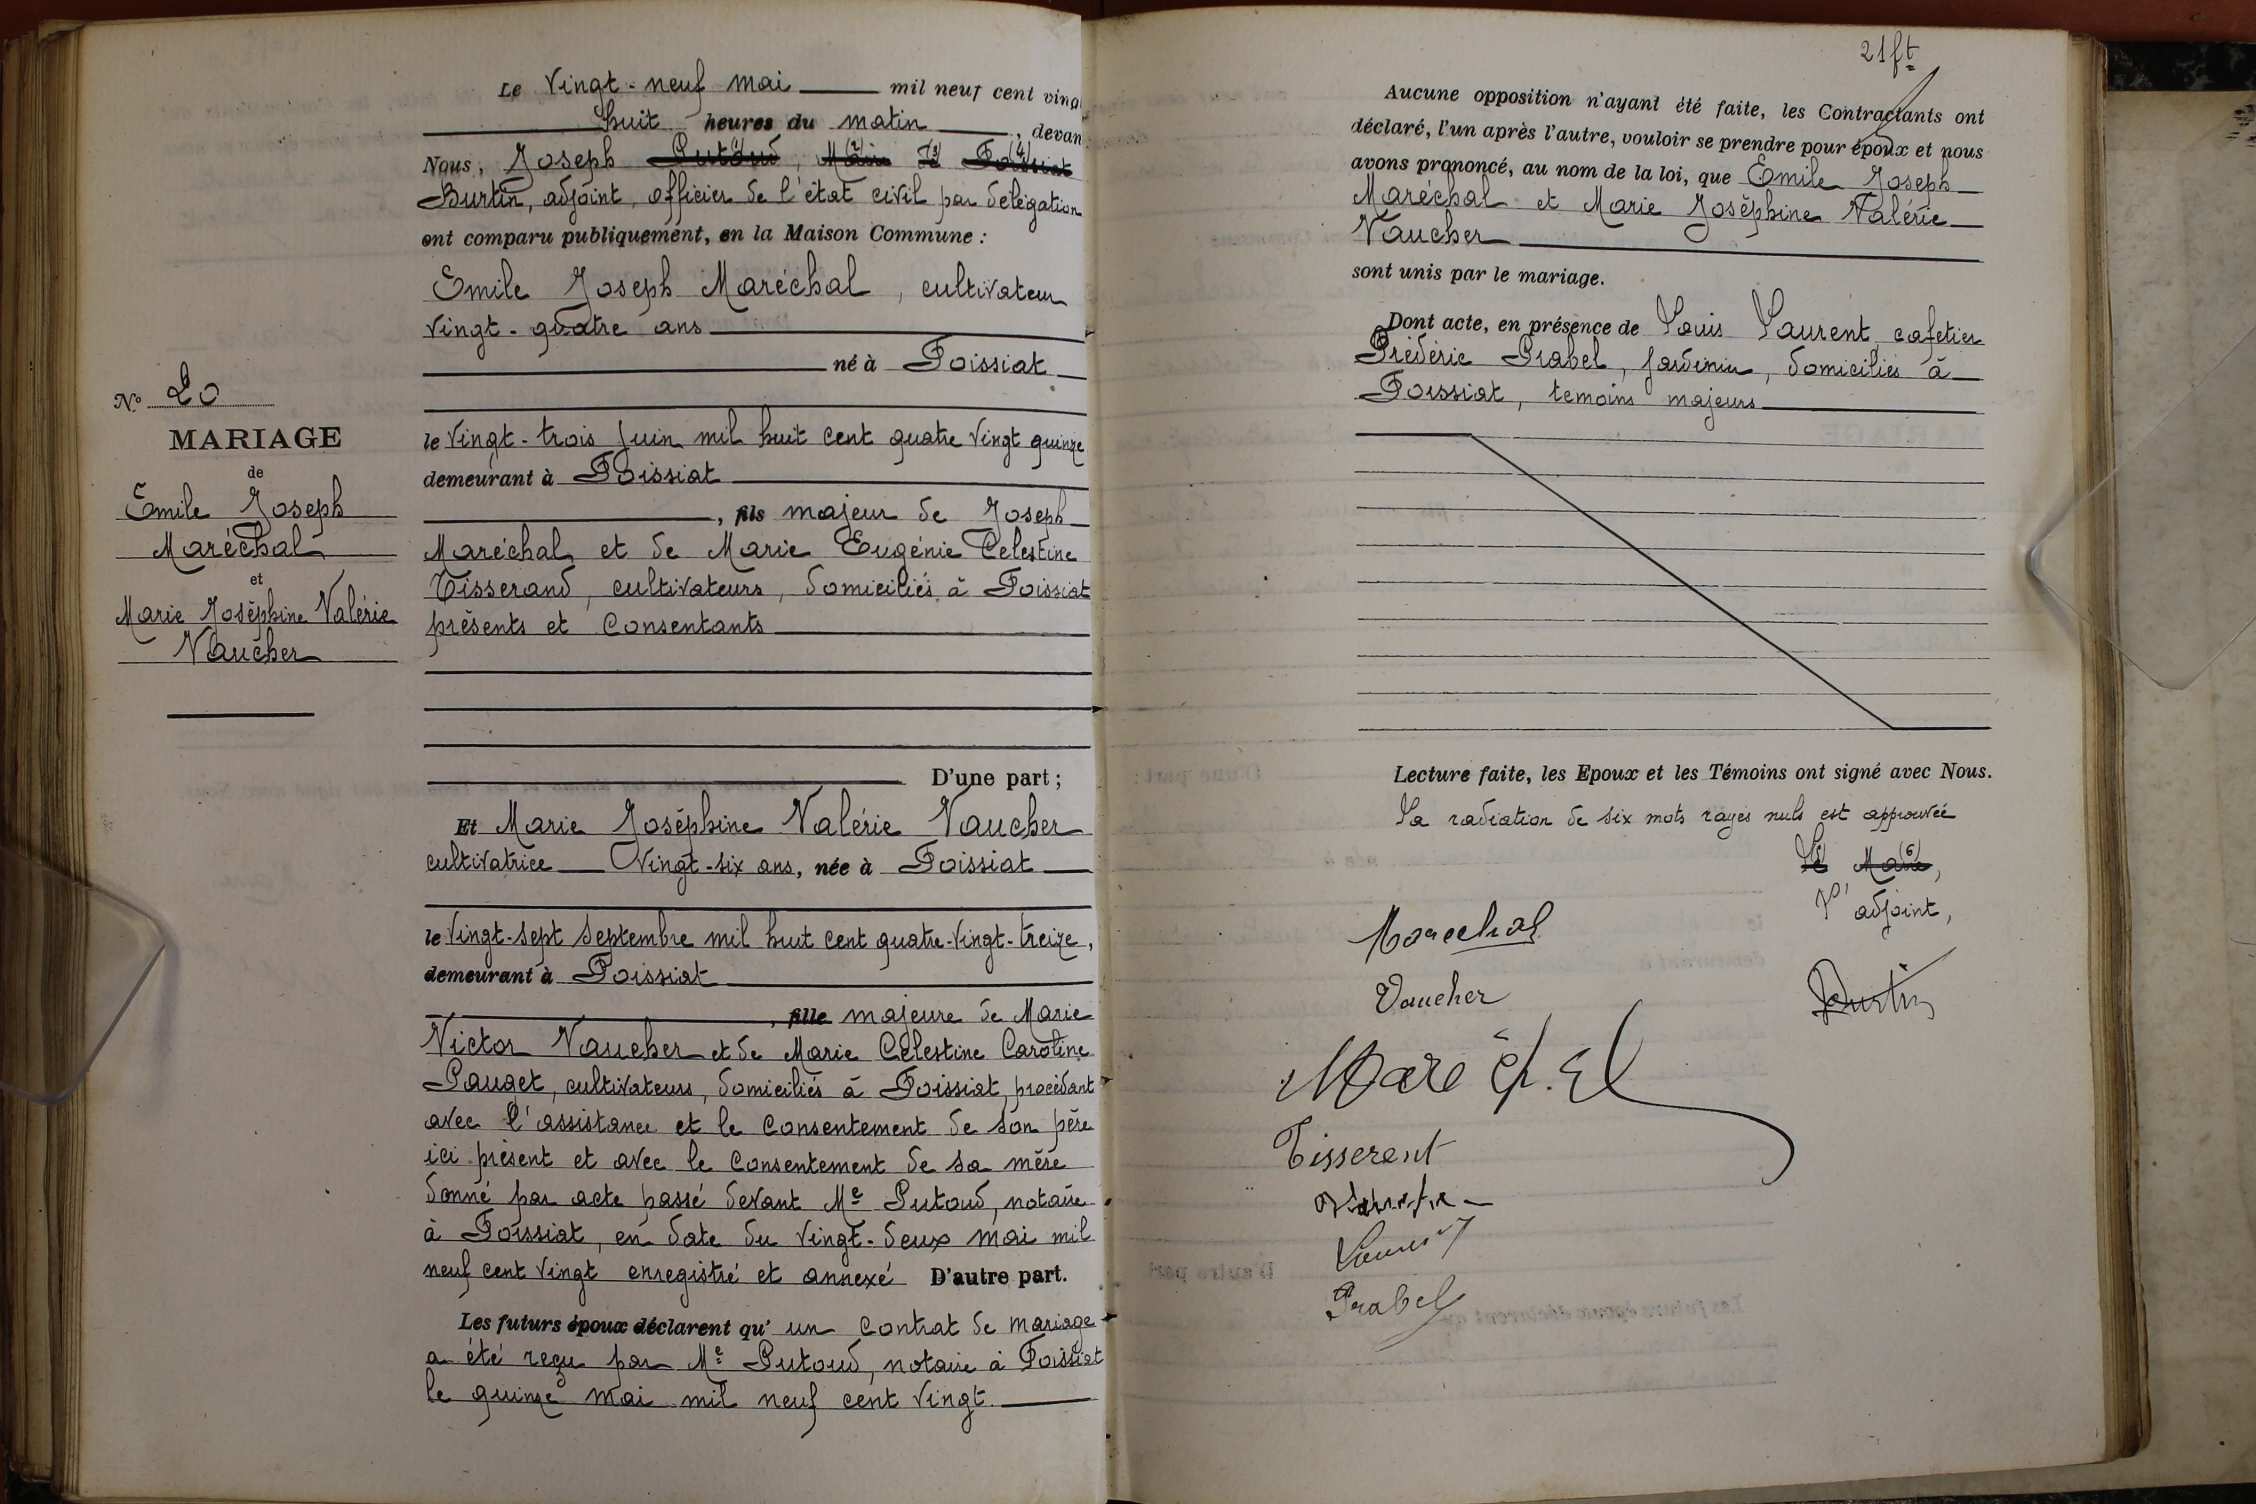 Le Vingt-neuf mai mil neuf cent ving
huit heures du matin, devan
Nous, Joseph Putoud (1), Maire (2) de (3) Foissiat (4)
Burtin, adjoint, officier de l'état civil par délégation
ont comparu publiquement, en la Maison Commune :
Emile Joseph Maréchal, cultivateur
vingt-quatre ans
né à Foissiat
le vingt-trois Juin mil huit cent quatre vingt quinze
demeurant à Foissiat
, fils majeur de Joseph
Maréchal et de Marie Eugénie Célestine
Tisserand, cultivateurs, domiciliés à Foissiat
présents et consentants
D'une part ;
Et Marie Joséphine Valérie Vaucher
cultivatrice Vingt-six ans, née à Foissiat
le vingt-sept Septembre mil huit cent quatre-vingt-treize,
demeurant à Foissiat
, fille majeure de Marie
Victor Vaucher et de Marie Célestine Caroline
Pauget, cultivateurs, domiciliés à Foissiat, procédant
avec l'assistance et le consentement de son père
ici présent et avec le consentement de sa mère
donné par acte passé devant Me Putoud, notaire
à Foissiat, en date du vingt-deux mai mil
neuf cent vingt enregistré et annexé D'autre part.
Les futurs époux déclarent qu'un contrat de mariage
a été reçu par Me Putoud, notaire à Foissiat
le quinze mai mil neuf cent vingt.
No 20
MARIAGE
de
Emile Joseph
Maréchal
et
Marie Joséphine Valérie
Vaucher
21 ft
Aucune opposition n'ayant été faite, les Contractants ont
déclaré, l'un après l'autre, vouloir se prendre pour époux et nous
avons prononcé, au nom de la loi, que Emile Joseph
Maréchal et Marie Joséphine Valérie
Vaucher
sont unis par le mariage.
Dont acte, en présence de Louis Laurent, cafetier
Frédéric Prabel, jardinier, domiciliés à
Foissiat, témoins majeurs
Lecture faite, les Epoux et les Témoins ont signé avec Nous.
La radiation de six mots rayés nuls est approuvée
Le (5) Maire (6),
adjoint,
Marechal
Burtin
Vaucher
Maréchal
Tisserent
Laurent
Prabel